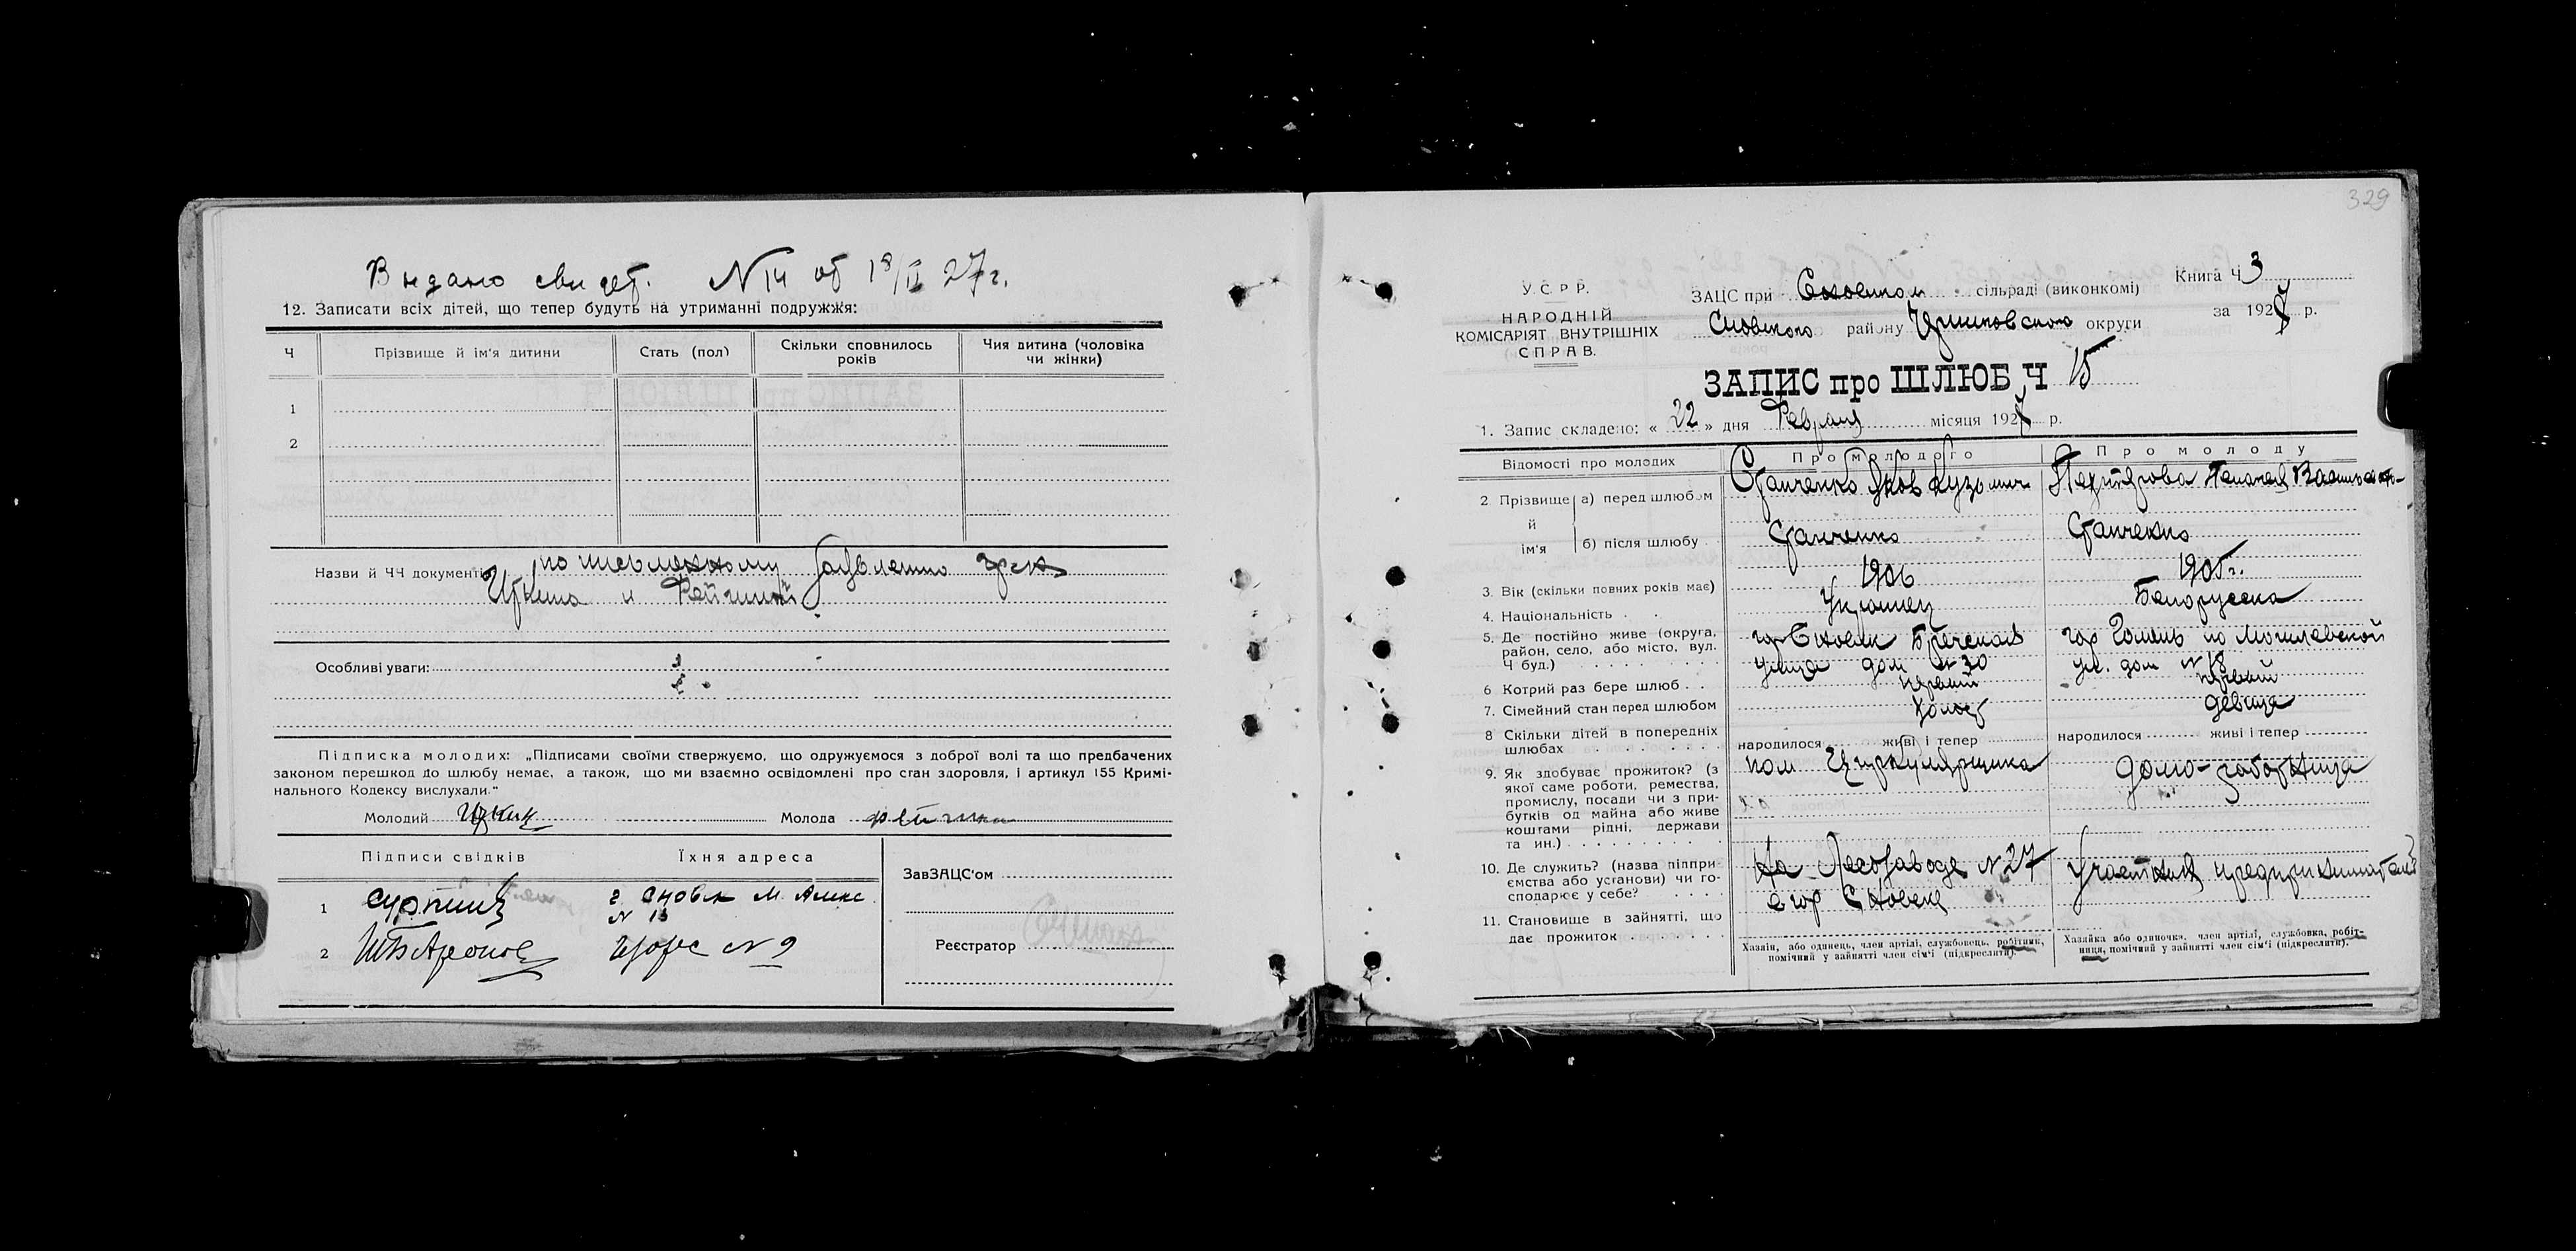 Выдано свидет. N 14 от 18/II 27 г.
12. Записати всіх дітей, що тепер будуть на утриманні подружжя:
Ч
Прізвище й ім'я дитини
Стать (пол)
Скільки сповнилось років
Чия дитина (чоловіка чи жінки)
1
2
Назви й ЧЧ документів по письменному заявлению гр-н
Цркина и Фейгиной
Особливі уваги:
Підписка молодих: „Підписами своїми ствержуємо, що одружуємося з доброї волі та що предбачених
законом перешкод до шлюбу немає, а також, що ми взаємно освідомлені про стан здоровля, і артикул 155 Кримі-
нального Кодексу вислухали."
Молодий
Молода фейгина
Підписи свідків
Їхня адреса
1 г. Сновск М. Алекс.
N 13
2 N 9
ЗавЗАЦС'ом
Реєстратор
329
У.С.Р.Р.
НАРОДНІЙ
КОМІСАРІЯТ ВНУТРІШНІХ
СПРАВ.
ЗАЦС при Сновском сільраді (виконкомі)
Сновского району Черниговского округи
Книга Ч 3
за 1927 р.
ЗАПИС про ШЛЮБ Ч 15
1. Запис складено: « 22 » дня Февраля місяця 1927 р.
Відомості про молодих
Про молодого
Про молоду
2 Прізвище й ім'я
а) перед шлюбом
Станченко Яков Кузьмич
Пелагея Васильевн-
б) після шлюбу
Станченко
Станченко
3. Вік (скільки повних років має)
1906
1905 г.
4. Національність
Украинец
Белорусска
5. Де постійно живе (округа,
район, село, або місто, вул.
Ч буд.)
гор Сновск Бреческая
улица дом N 30
гор Гомель по Могилевской
ул. дом N 18
6 Котрий раз бере шлюб
первый
первый
7. Сімейний стан перед шлюбом
холост
девица
8 Скільки дітей в попередніх
шлюбах
народилося живі і тепер
народилося живі і тепер
9. Як здобуває прожиток? (з
якої саме роботи, ремества,
промислу, посади чи з при-
бутків од майна або живе
коштами рідні, держави
та ин.)
пом Циркулярщика
домо-работница
10. Де служить? (назва підпри-
ємства або установи) чи го-
сподарює у себе?
На Лесозаводе N 27
в гор Сновске
11. Становище в зайнятті, що
дає прожиток
Хазяїн, або одинець, член артілі, службовець, робітник,
помічний у зайнятті член сім'ї (підкреслити).
Хазяйка або одиночка, член артілі, службовка, робіт-
ниця, помічний у зайнятті член сім'ї (підкреслити).